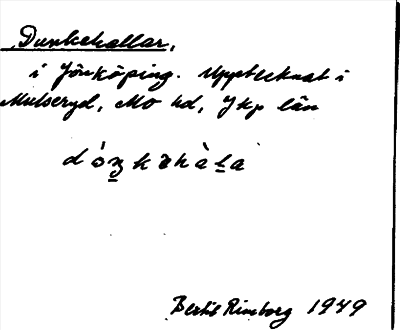 Dunkehallar,
i Jönköping. Upptecknat i
Mulseryd, Mo hd, Jkp län
Bertil Rimborg 1979